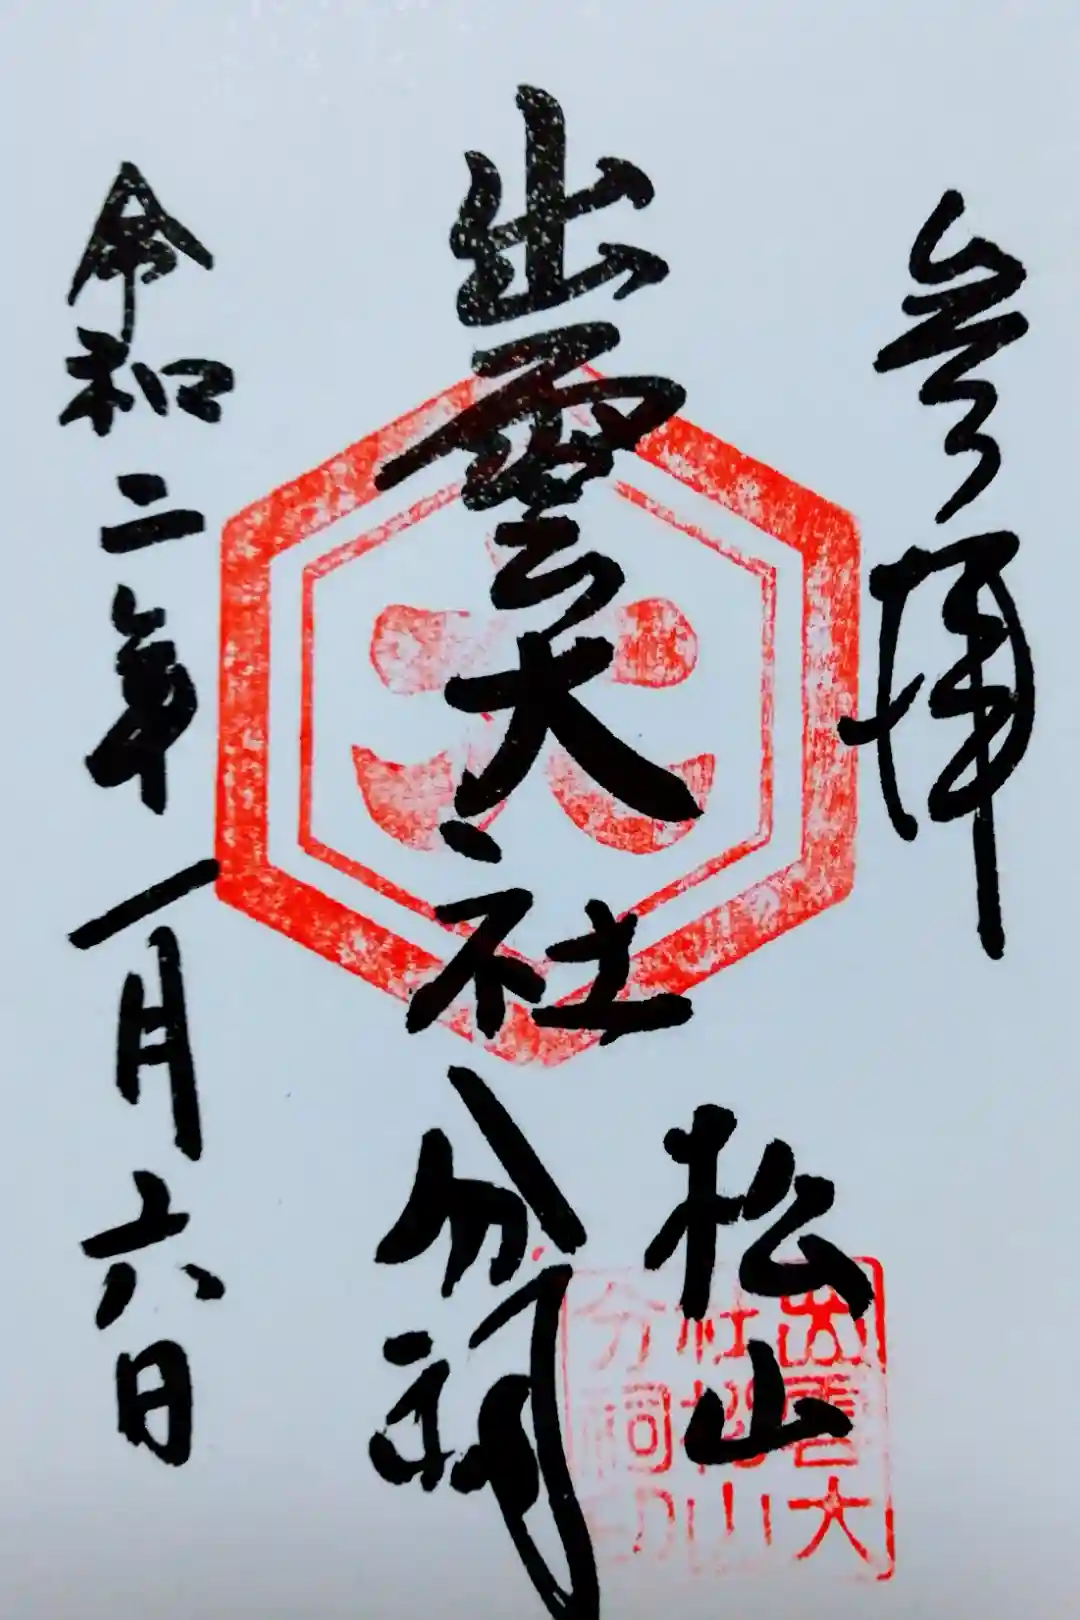 参拝
出雲大社
松山
分祠
令和二年一月六日
出雲大
社松山
分祠印